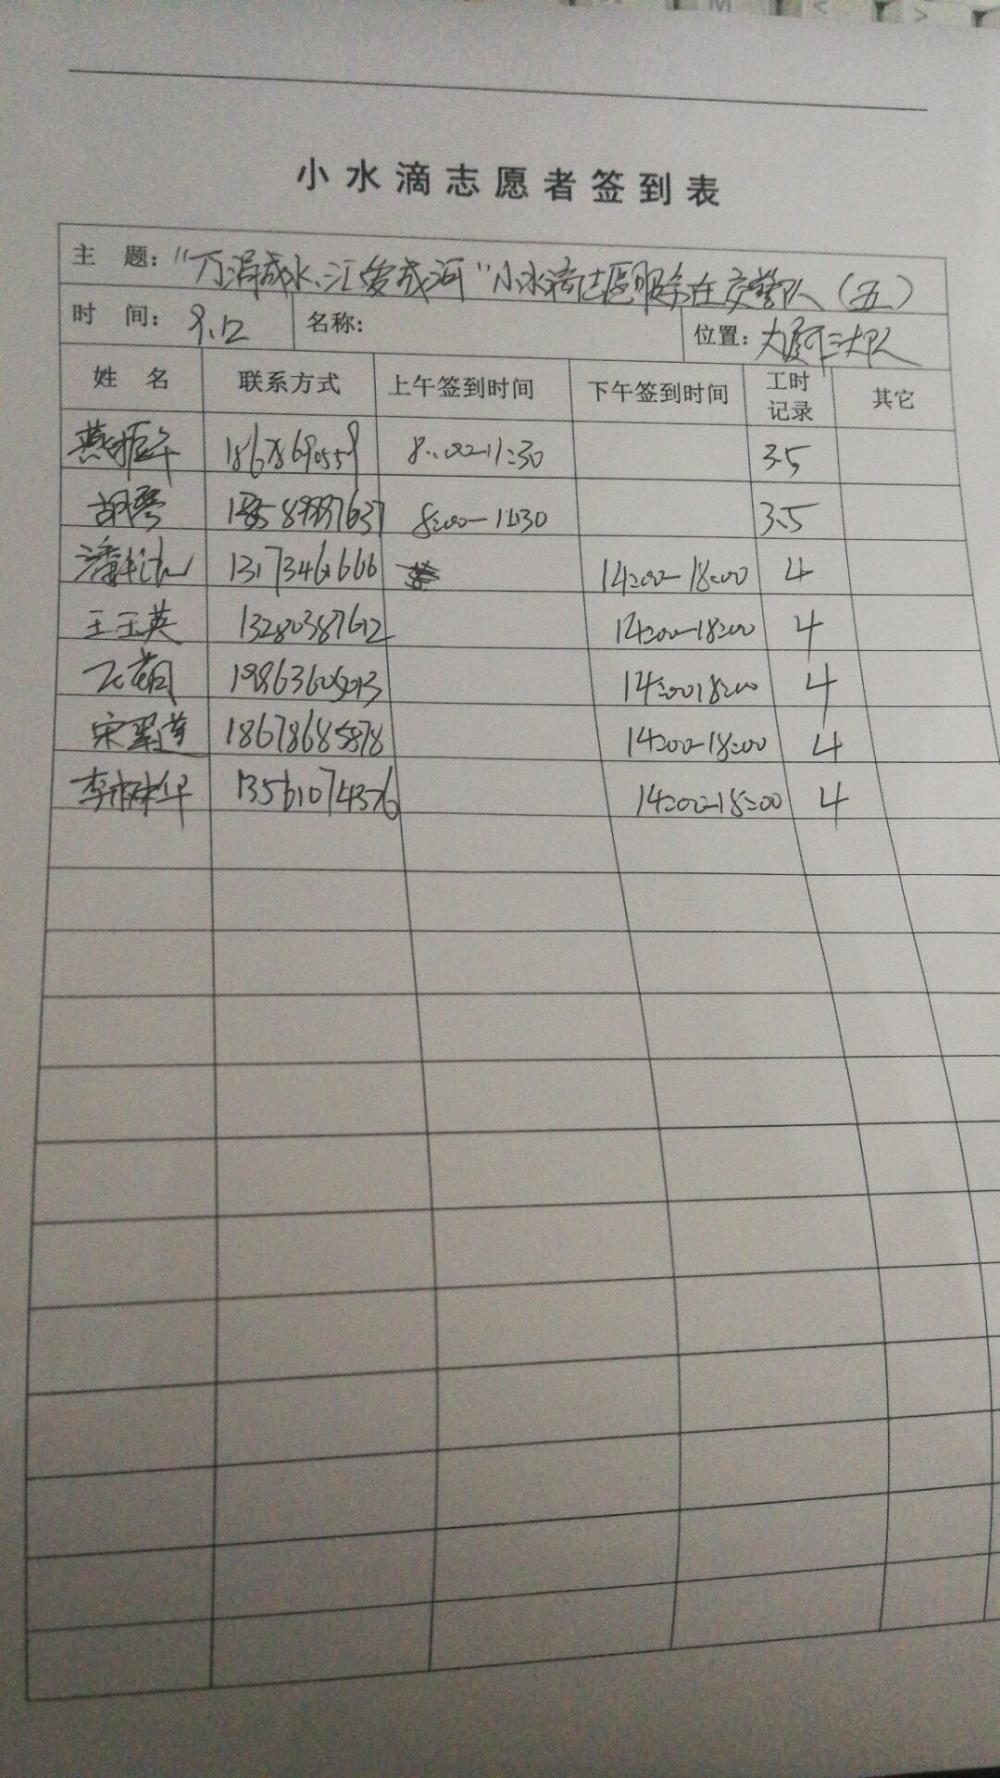 小水滴志愿者签到表
主 题: "万涓成水、汇爱成河"小水滴志愿服务在交警队（五）
时 间: 9.12 名称: 位置: 大队
姓 名 联系方式 上午签到时间 下午签到时间 工时记录 其它
燕振华 18678690559 8:00-11:30 3.5
胡琴 8:00-11:30 3.5
潘 13173461666 14:00-18:00 4
王玉英 13280387612 14:00-18:00 4
14:00 18:00 4
宋翠莲 18678685878 14:00-18:00 4
李树华 13561074376 14:00-18:00 4